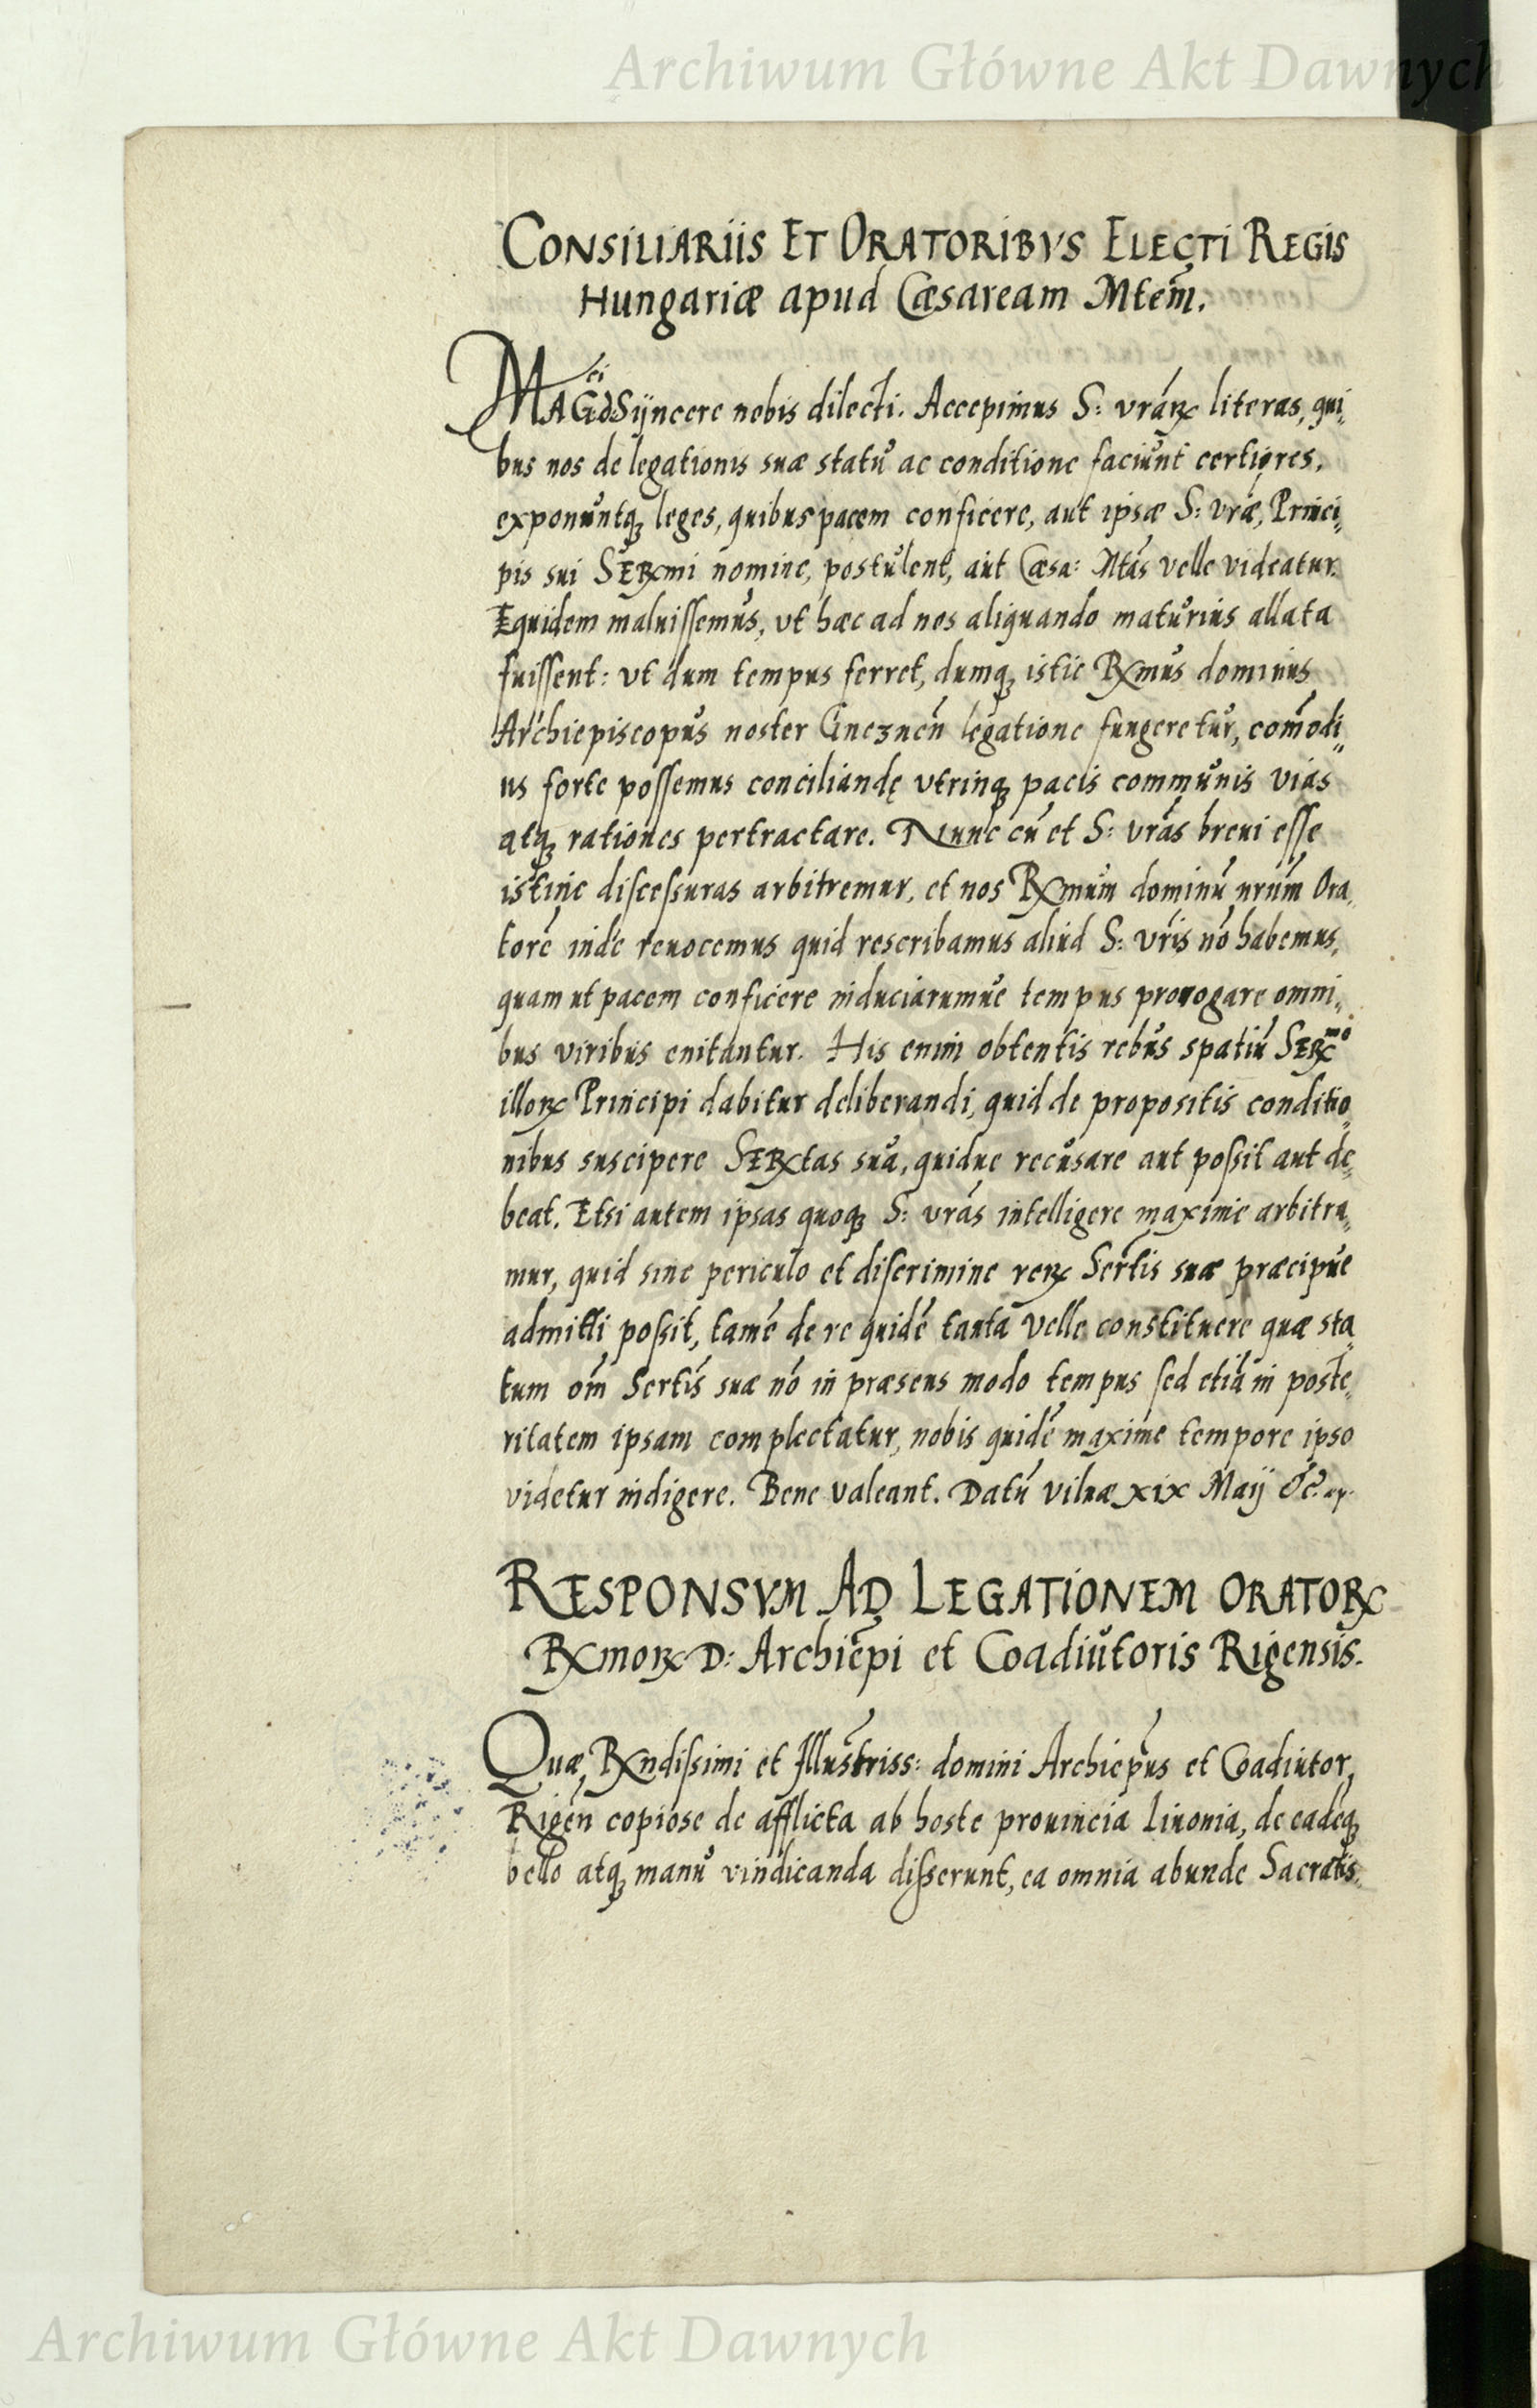 Archiwum Główne Akt Dawnych
CONSILIARIIS ET ORATORIBVS ELECTI REGIS
Hungariæ apud Cæsaream Mtem̃.
MAG̃ci Sÿncere nobis dilecti. Accepimus S: vrãꝝ literas, qui„
bus nos de legationis suæ statŭ ac conditione faciŭnt certiores,
exponŭntqꝫ leges, quibus pacem conficere, aut ipsæ S: vræ, Princi„
pis sui SERꝝmi nomine, postŭlent, aŭt Cæsa: Mtãs velle videatur.
Equidem maluissemŭs, vt hæc ad nos aliquando matŭrius allata
fuissent: vt dum tempus ferret, dumqꝫ istic Rꝝmŭs dominus
Archiepiscopŭs noster Gneznen̄ legatione fungeretŭr, com̃odi„
us forte possemus conciliandę vtrinqꝫ pacis commŭnis vias
atqꝫ rationes pertractare. Nunc cũ et S: vrãs breui esse
istinc discessuras arbitremur, et nos Rꝝmŭm dominũ nrũm Ora„
torẽ inde reuocemus quid rescribamus aliud S: vrĩs nõ habemus,
quam ut pacem conficere induciarumŭe tempus prorogare omni„
bus viribus enitantur. His enim obtentis rebŭs spatiũ SERꝝmo
illoꝝ Principi dabitur deliberandi, quid de propositis conditio„
nibus suscipere SERꝝtas sŭa, quidue recŭsare aut possit aut de„
beat. Etsi autem ipsas quoqꝫ S: vrãs intelligere maxime arbitra„
mur, quid sine periculo et discrimine reꝝ Sertĩs suæ præcipŭe
admitti possit, tamẽ de re quidẽ tanta velle constituere quæ sta„
tum om̃ Sertĩs suæ nõ in præsens modo tempus sed etiã in poste„
ritatem ipsam complectatur, nobis quidẽ maxime tempore ipso
videtur indigere. Bene valeant. Datũ vilnæ xix Maij &c̃.
RESPONSVM AD LEGATIONEM ORATORꝝ
Rꝝmoꝝ D: Archiẽpi et Coadiŭtoris Rigensis.
Quæ, Rꝝndissimi et Illŭstriss: domini Archiep̃us et Coadiutor,
Rigen̄ copiose de afflicta ab hoste prouincia Liuonia, de eadẽqꝫ
bello atqꝫ manŭ vindicanda disserunt, ea omnia abunde Sacratis„
Archiwum Główne Akt Dawnych